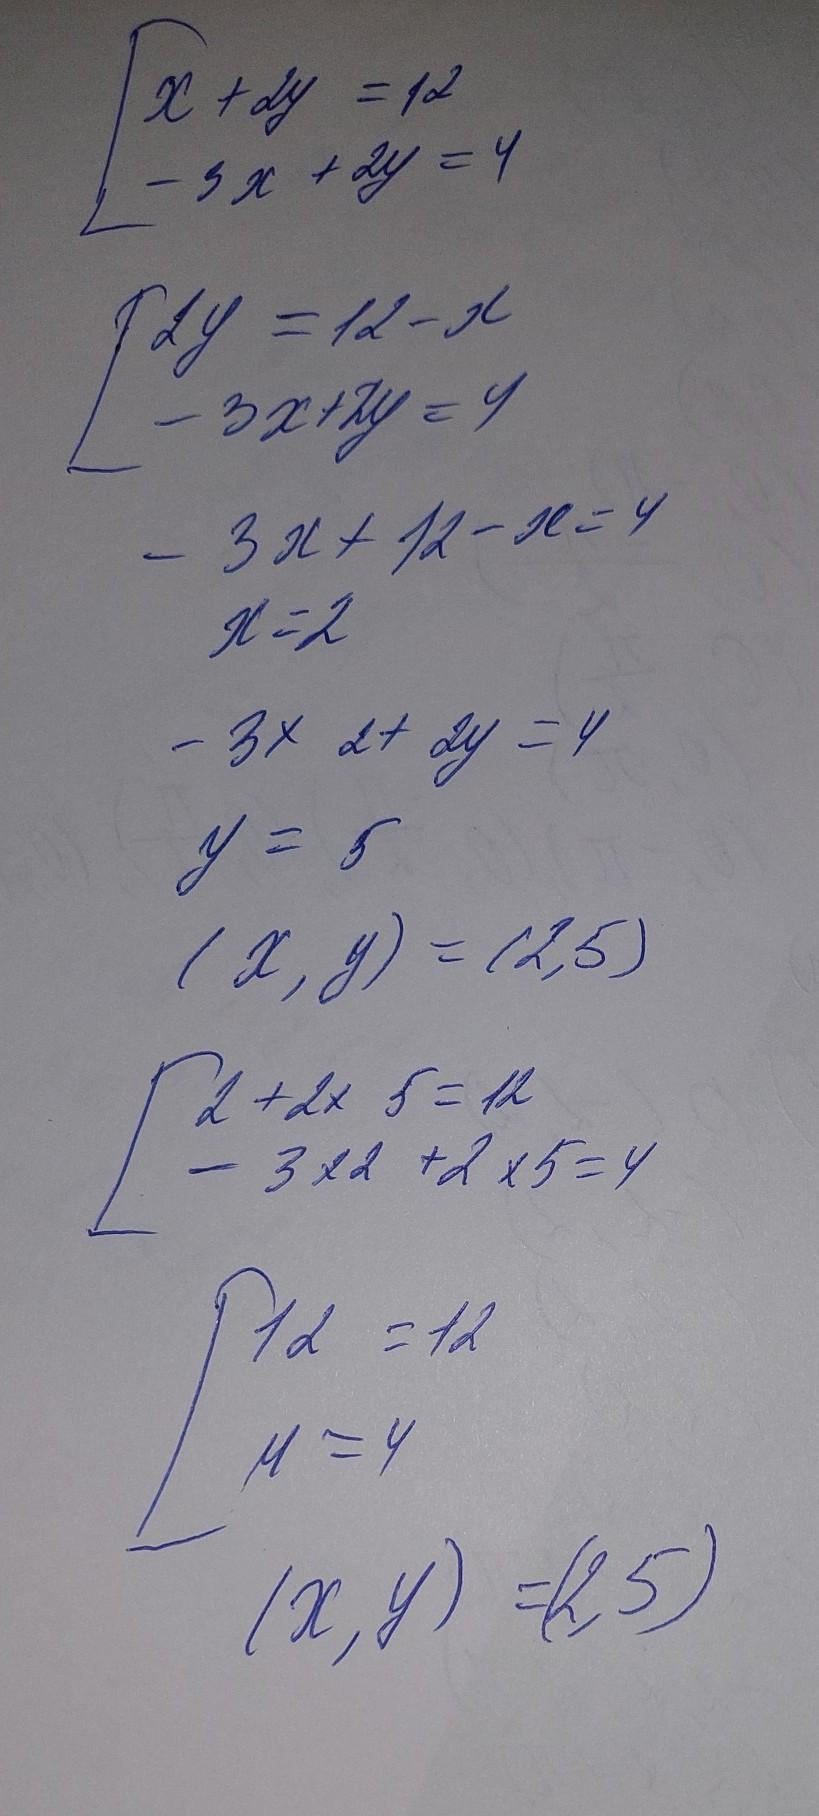 x + 2y = 12
- 3x + 2y = 4
2y = 12 - x
- 3x + 2y = 4
- 3x + 12 - x = 4
x = 2
- 3 × 2 + 2y = 4
y = 5
(x, y) = (2,5)
2 + 2 × 5 = 12
- 3 × 2 + 2 × 5 = 4
12 = 12
4 = 4
(x, y) = (2,5)